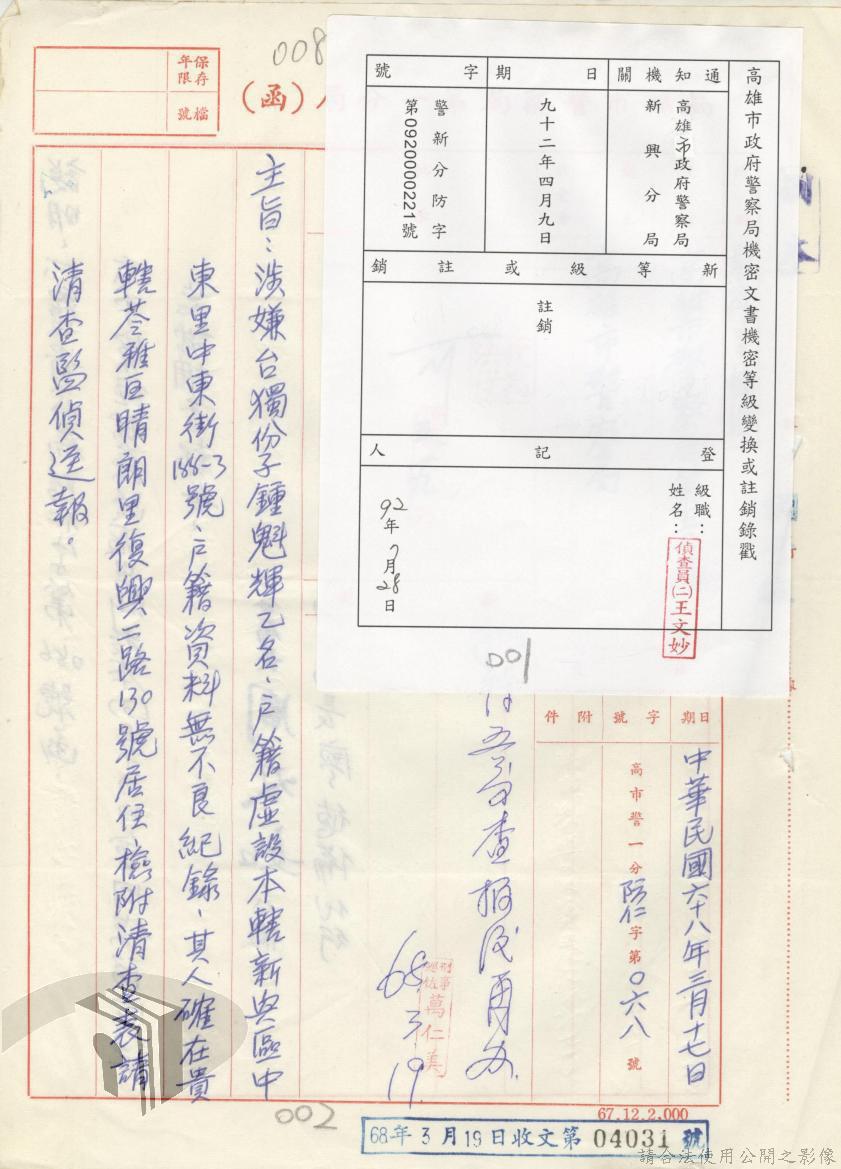 高雄市政府警察局機密文書機密等級變換或註銷錄戳
通知機關
高雄市政府警察局
新興分局
日期
九十二年四月九日
字號
警新分防字
第0920000221號
新等級或註銷
註銷
登記人
級職：
姓名：
偵查員(二)王文妙
92年7月28日
001
008
(函)
保存年限
檔號
日期
中華民國六十八年三月十七日
字號
高市警一分防仁字第0六八號
附件
查報後再办.
刑事
萬仁美
68.3.19.
主旨：涉嫌台獨份子鍾魁輝乙名、戶籍虛設本轄新興區中
東里中東街188-3號、戶籍資料無不良紀錄、其人確在貴
轄苓雅區晴朗里復興二路130號居住、檢附清查表請
清查監偵逕報。
002
67.12.2,000
68年3月19日收文第04031號
請合法使用公開之影像